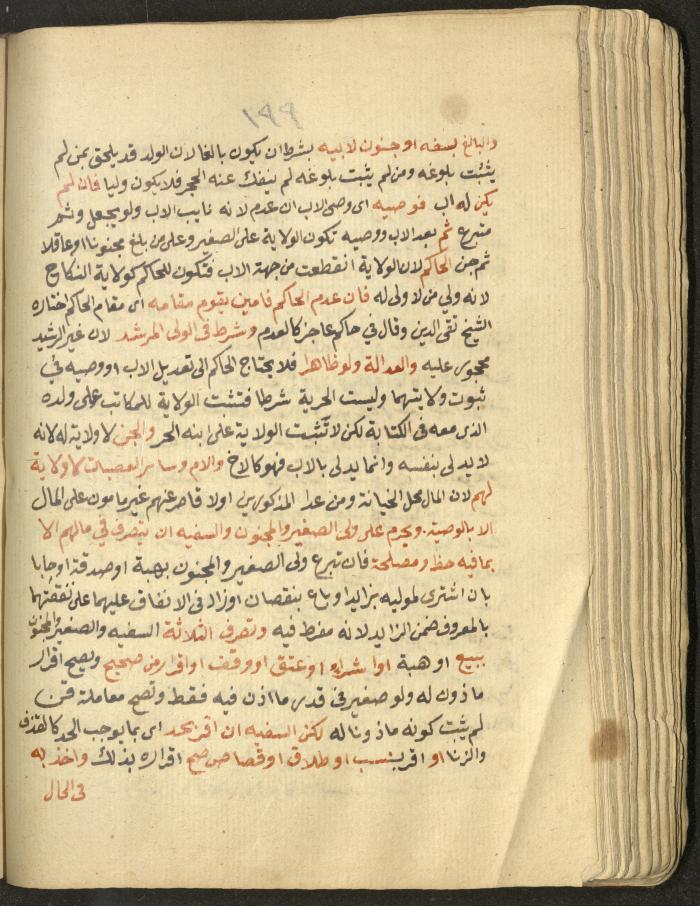 ١٩٩
والبالغ بسفه او جنون لابيه بشرط ان يكون بالغا لان الولد قد يلحق بمن لم
يثبت بلوغه ومن لم يثبت بلوغه لم ينفك عنه الحجر فلا يكون وليا فان لم
يكن له اب فوصيه اي وصي الاب ان عدم لانه نايب الاب ولو بجعل وثم
متبرع ثم بعد الاب ووصيه تكون الولاية على الصغير وعلى من بلغ مجنونا او عاقلا
ثم جن الحاكم لان الولاية انقطعت من جهة الاب فتكون للحاكم كولاية النكاح
لانه ولي من لا ولي له فان عدم الحاكم فامين يقوم مقامه اي مقام الحاكم اختاره
الشيخ تقى الدين وقال في حاكم عاجز كالعدم وشرط في الولي المرشد لان غير الرشيد
محجور عليه والعدالة ولو ظاهرا فلا يحتاج الحاكم الى تعديل الاب او وصيه في
ثبوت ولايتهما وليست الحرية شرطا فتثبت الولاية للمكاتب على ولده
الذي معه في الكتابة لكن لا تثبت الولاية على ابنه الحر والجد لا ولاية له لانه
لا يدلي بنفسه وانما يدلي بالاب فهو كالاخ والام وسائر العصبات لا ولاية
لهم لان المال محل الخيانة ومن عدا المذكورين اولا قاصر عنهم غير مامون على المال
الا بالوصية. ويحرم على ولي الصغير والمجنون والسفيه ان يتصرف في مالهم الا
بما فيه حظ ومصلحة فان تبرع ولي الصغير والمجنون بهبة او صدقة او حابا
بان اشترى لموليه بزايد او باع بنقصان او زاد في الانفاق عليهما على نفقتهما
بالمعروف ضمن الزايد لانه مفرط فيه وتصرف الثلاثة السفيه والصغير والمجنون
ببيع او هبة او شراء او عتق او وقف او اقرار من صحيح وتصح اقرار
ماذون له ولو صغير في قدر ما اذن فيه فقط وتصح معاملة قن
لم يثبت كونه ماذونا له لكن السفيه ان اقر بحد اي بما يوجب الحد كالقذف
والزنا او اقر بنسب او طلاق او قصاص صح اقراره بذلك واخذ به
في الحال